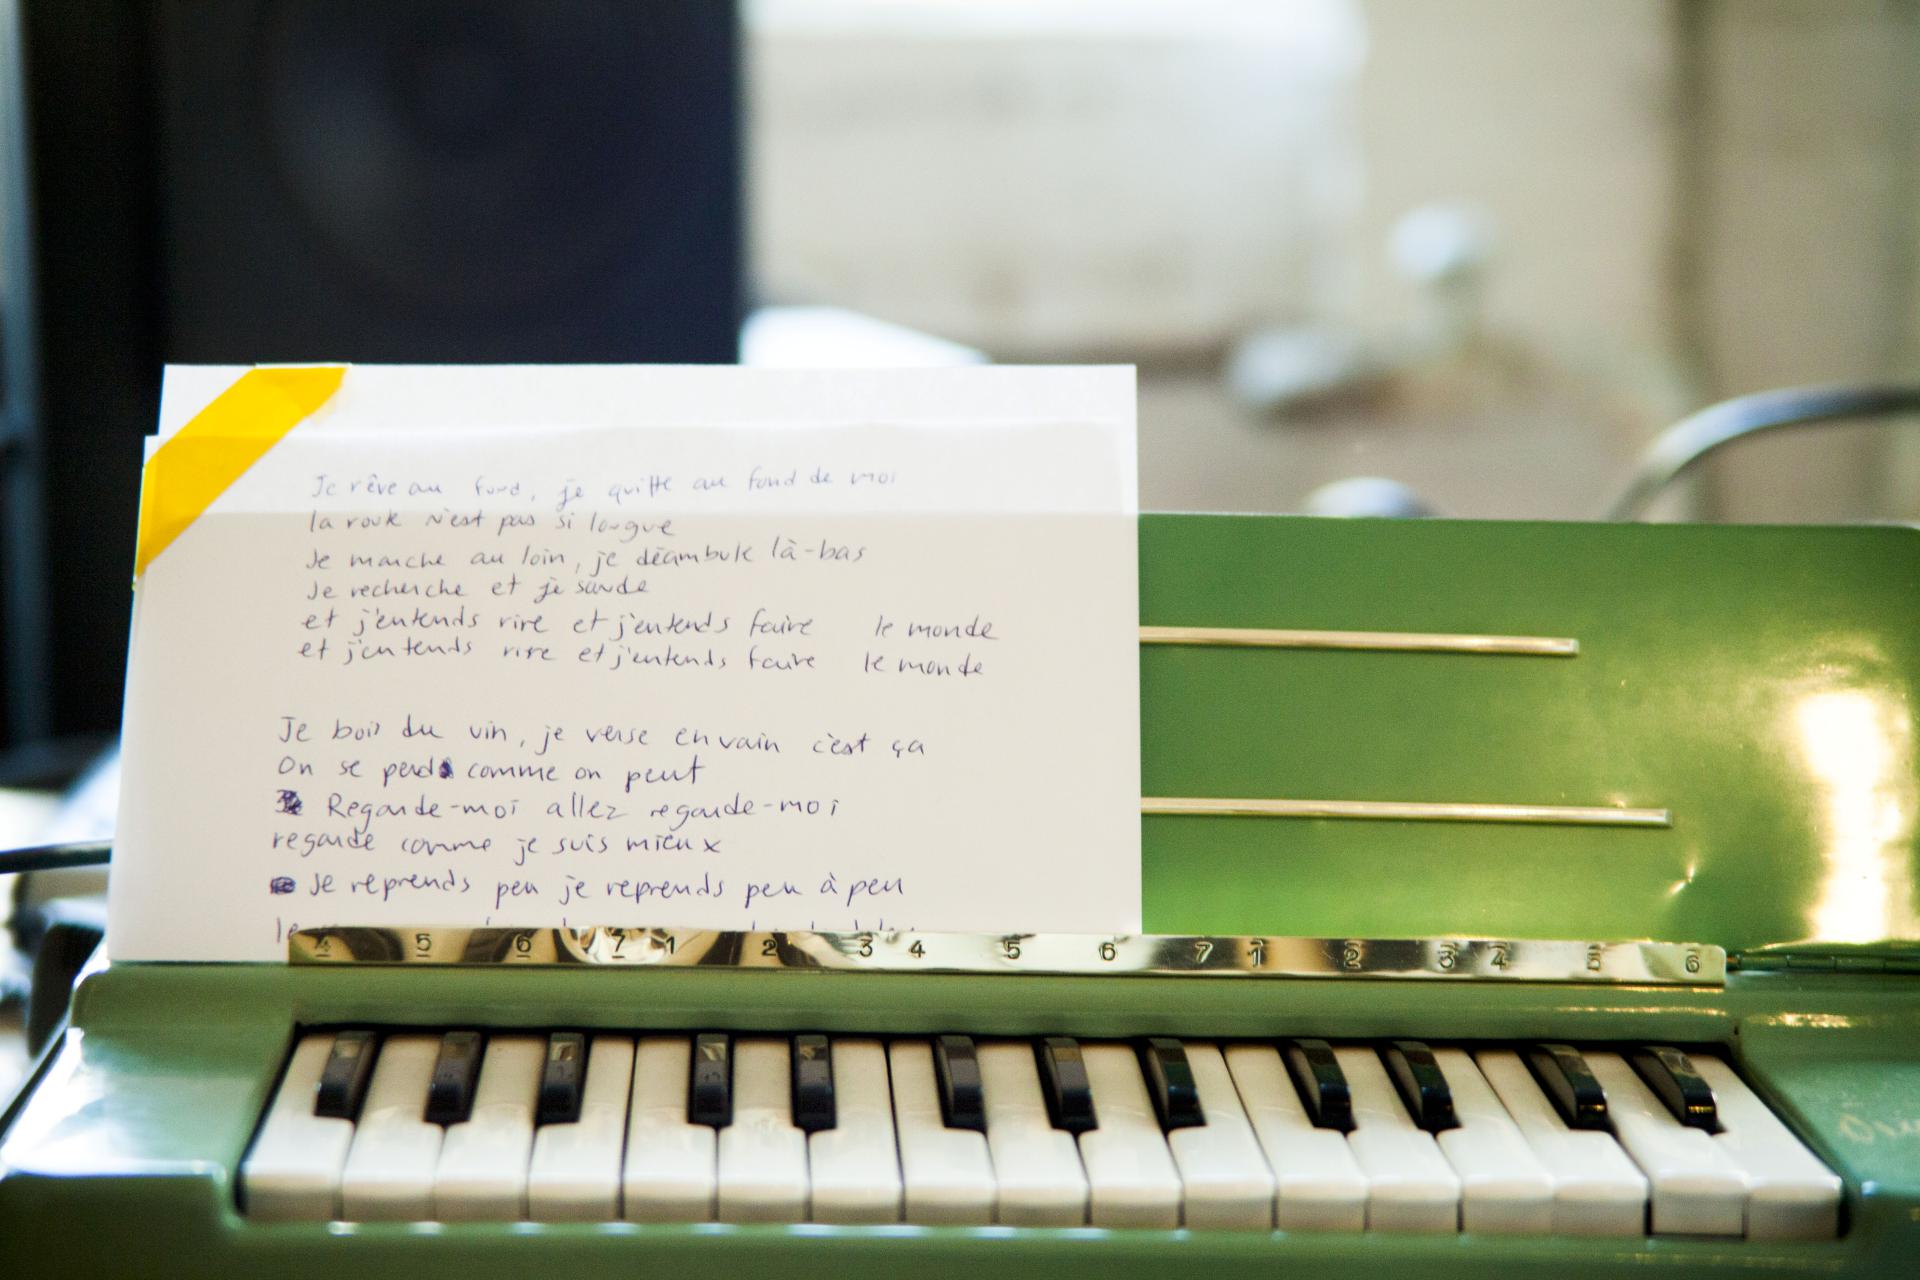 Je rêve au fond, je quitte au fond de moi
la route n'est pas si longue
Je marche au loin, je déambule là-bas
Je recherche et je sonde
et j'entends rire et j'entends faire le monde
et j'entends rire et j'entends faire le monde
Je bois du vin, je verse en vain c'est ça
On se perd comme on peut
Regarde-moi allez regarde-moi
regarde comme je suis mieux
Je reprends peu je reprends peu à peu
4 5 6 7 1 2 3 4 5 6 7 1 2 3 4 5 6